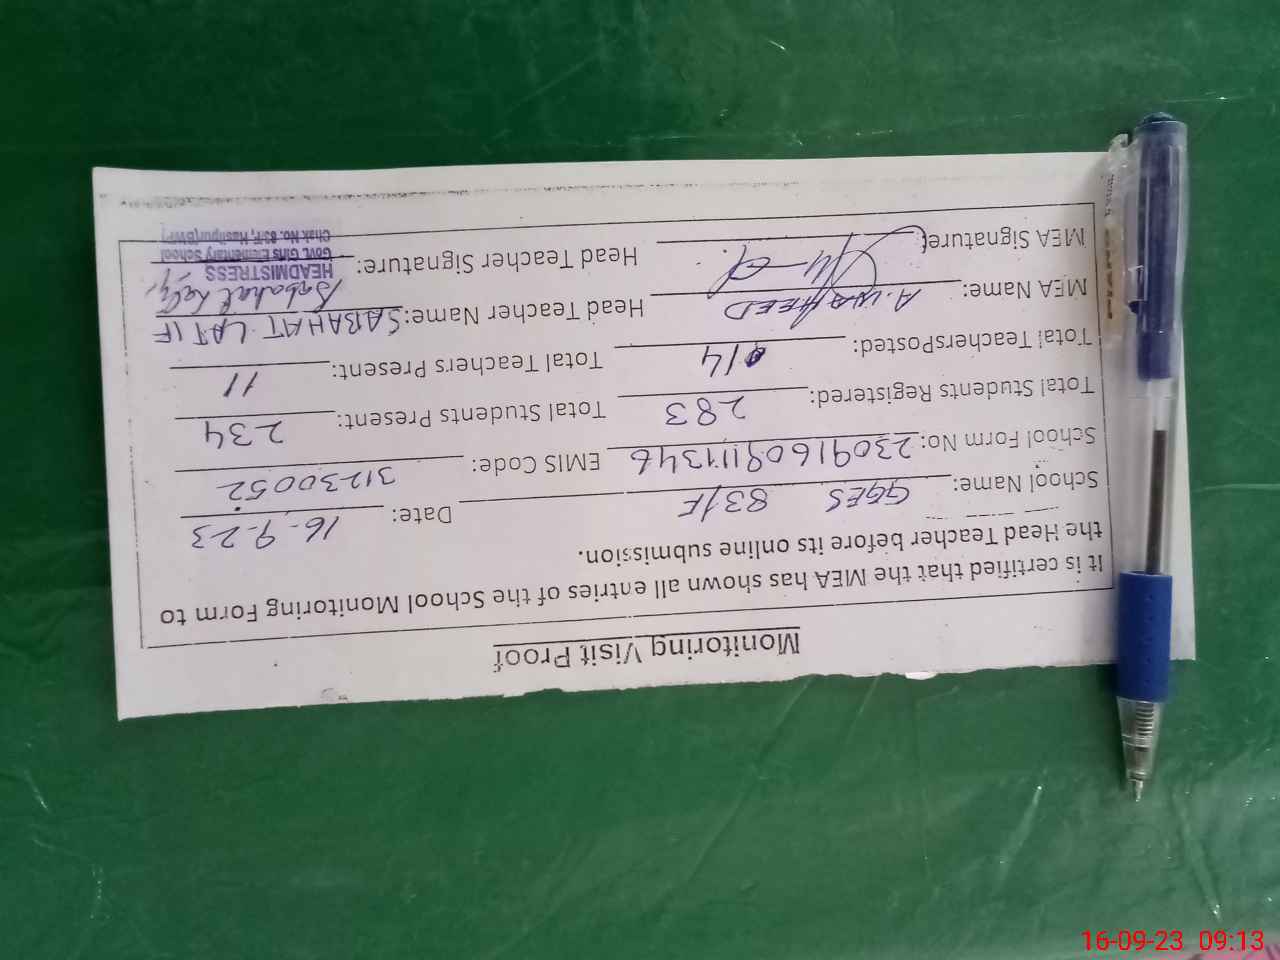 Monitoring Visit Proof
It is certified that the MEA has shown all entries of the School Monitoring Form to
the Head Teacher before its online submission.
School Name: GGES 83/F Date: 16-9-23
School Form No: 230916091111346 EMIS Code: 31230052
Total Students Registered: 283 Total Students Present: 234
Total TeachersPosted: 14 Total Teachers Present: 11
MEA Name: A. WAHEED Head Teacher Name: SABAHAT LATIF
MEA Signature: Head Teacher Signature:
HEADMISTRESS
Govt. Girls Elementary School
Chak No. 83/F, Hasilpur(BWP)
16-09-23 09:13